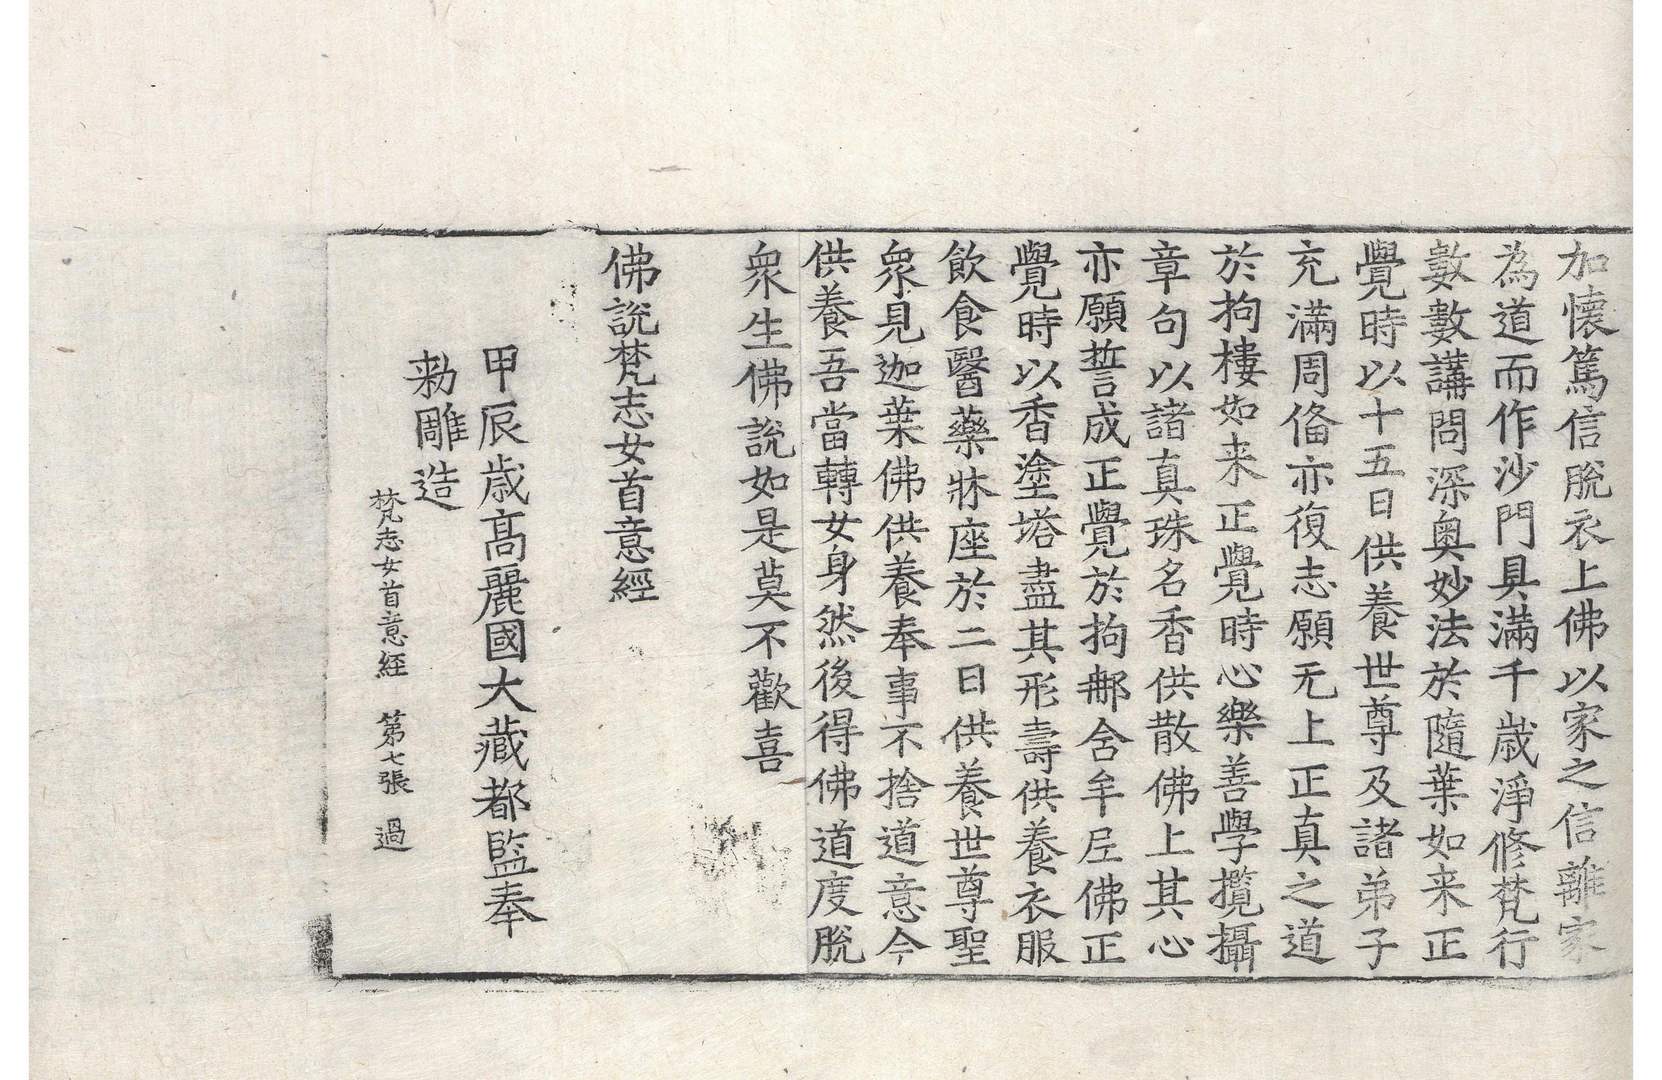 加懷篤信脫衣上佛以家之信離家
為道而作沙門具滿千歲淨修梵行
數數講問深奧妙法於隨葉如来正
覺時以十五日供養世尊及諸弟子
充滿周俻亦復志願无上正真之道
於拘樓如来正覺時心樂善學攬攝
章句以諸真珠名香供散佛上其心
亦願誓成正覺於拘䣊舍牟尼佛正
覺時以香塗塔盡其形壽供養衣服
飲食醫藥牀座於二日供養世尊聖
衆見迦葉佛供養奉事不捨道意今
供養吾當轉女身然後得佛道度脫
衆生佛說如是莫不歡喜
佛說梵志女首意經
甲辰歲高麗國大藏都監奉
勑雕造
梵志女首意経　第七張　過